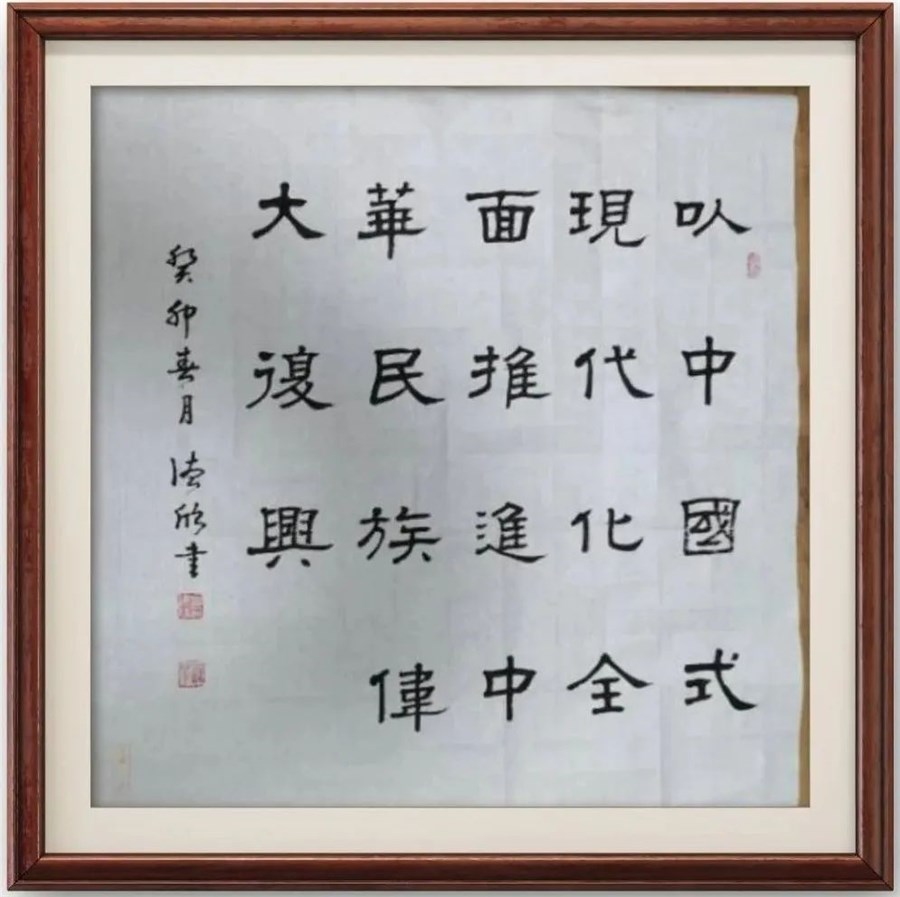 以中國式
現代化全
面推進中
華民族偉
大復興
癸卯春月 德欣書